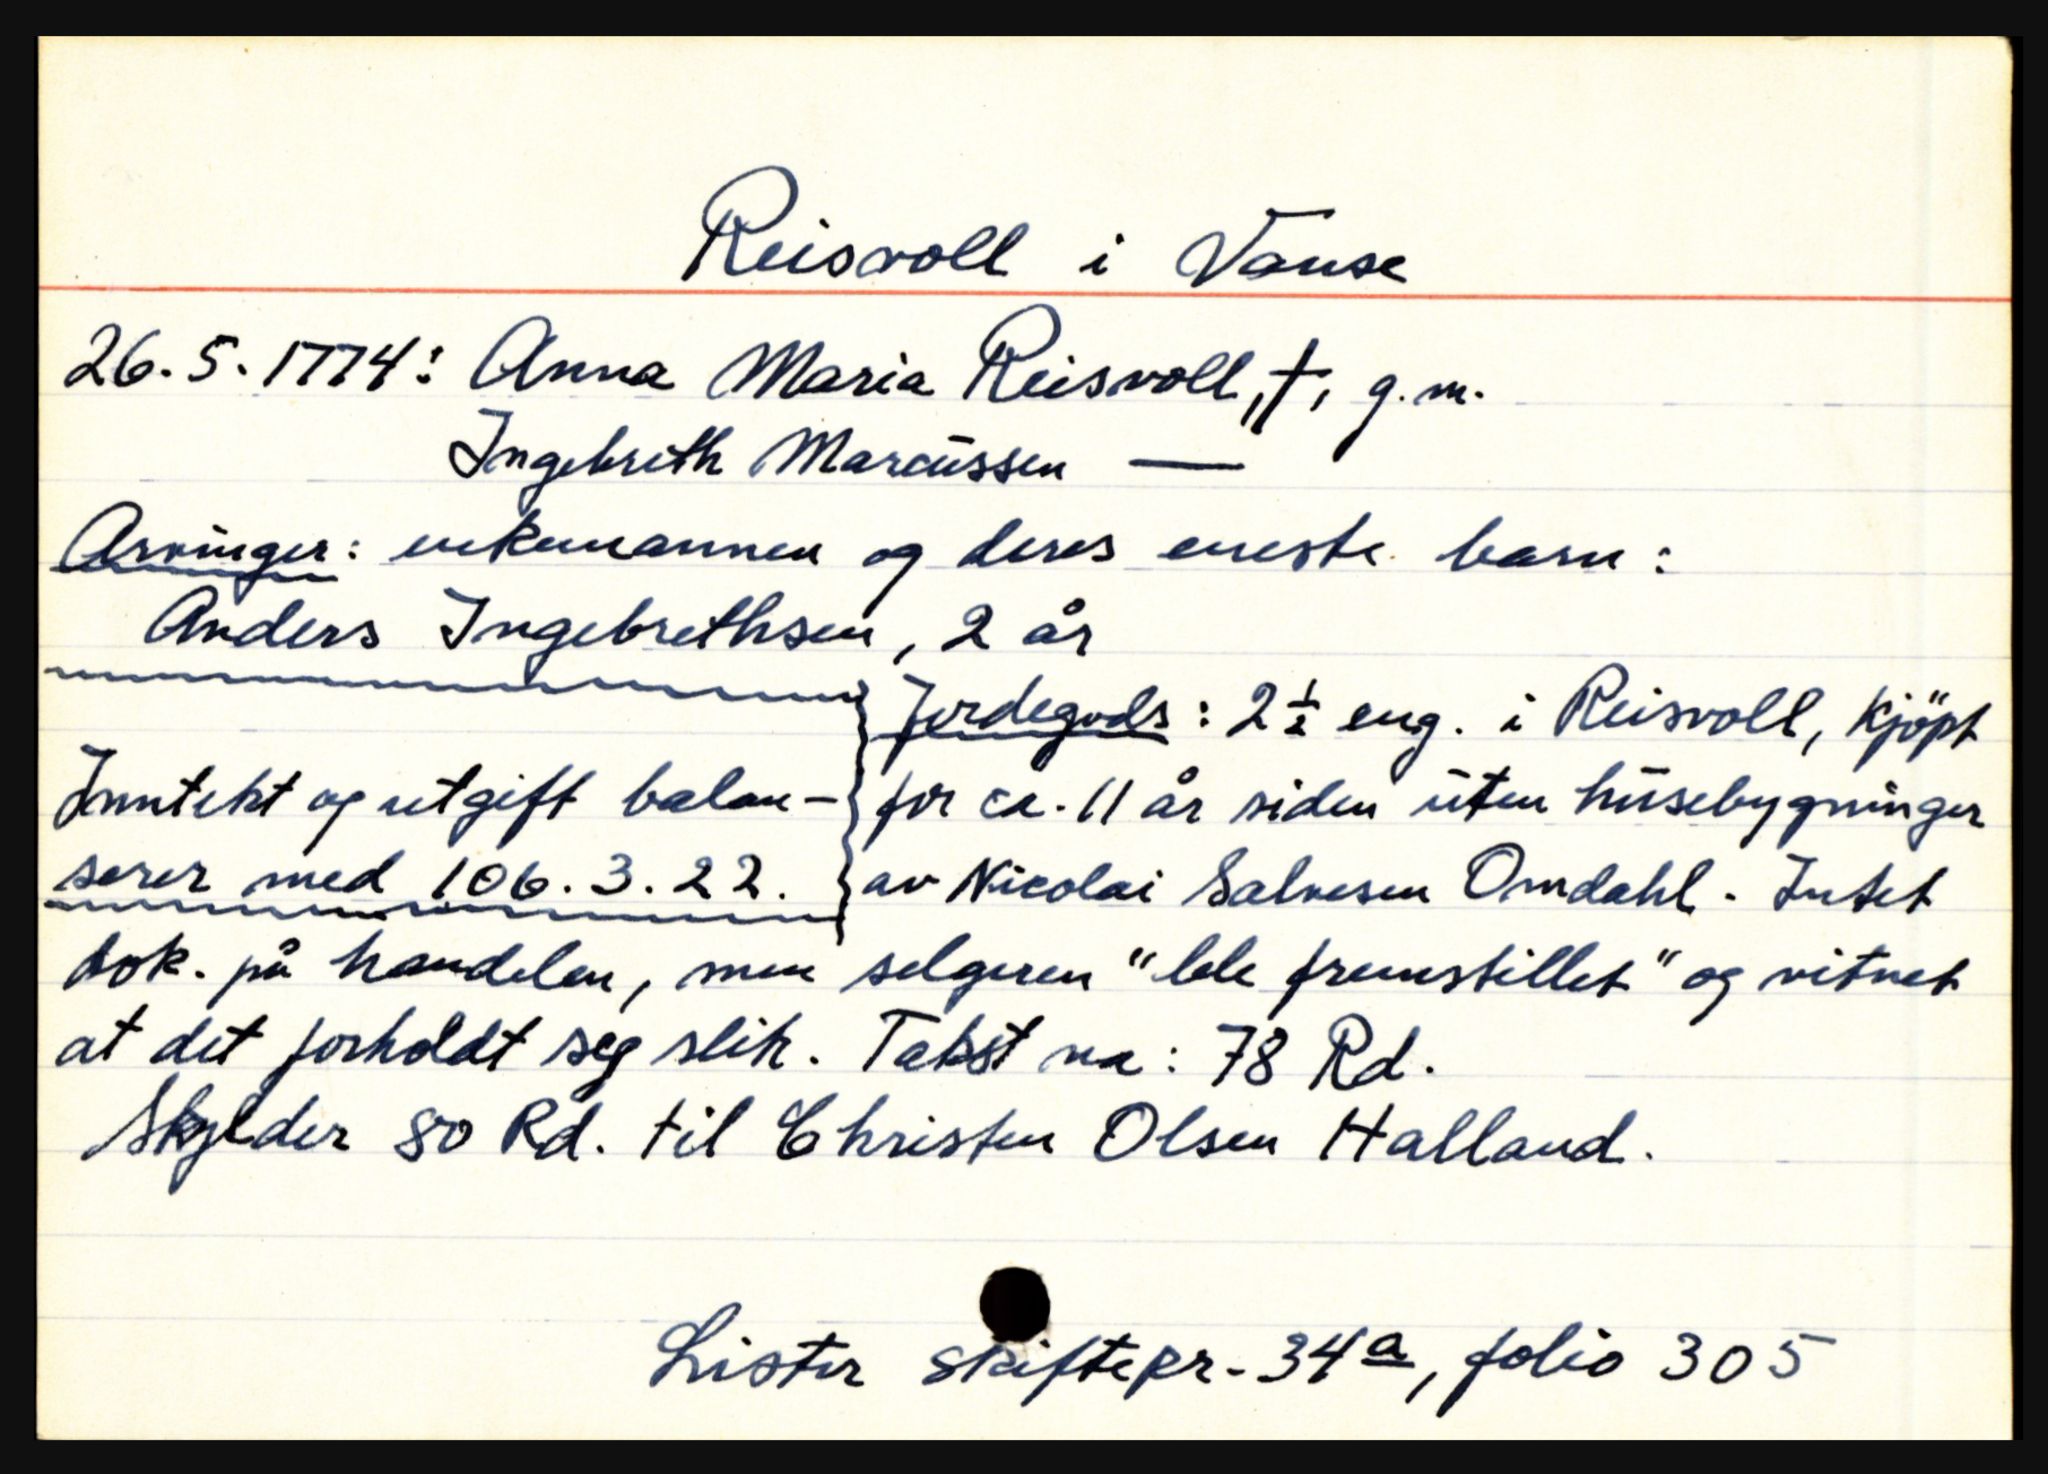 Reisvoll i Vanse
26.5.1774: Anna Maria Reisvoll, †, g.m.
Ingebreth Marcussen —
Arvinger: enkemannen og deres eneste barn:
Anders Ingebrethsen, 2 år
Inntekt og utgift balan-
serer med 106.3.22.
Jordegods: 2 1/2 eng. i Reisvoll, kjöpt
for ca. 11 år siden uten husebygninger
av Nicolai Salvesen Omdahl. Intet
dok. på handelen, men selgeren "lele fremstillet" og vitnet
at det forholdt seg slik. Takst va: 78 Rd.
Skylder 80 Rd. til Christen Olsen Halland.
Lister skiftepr. 34a, folio 305